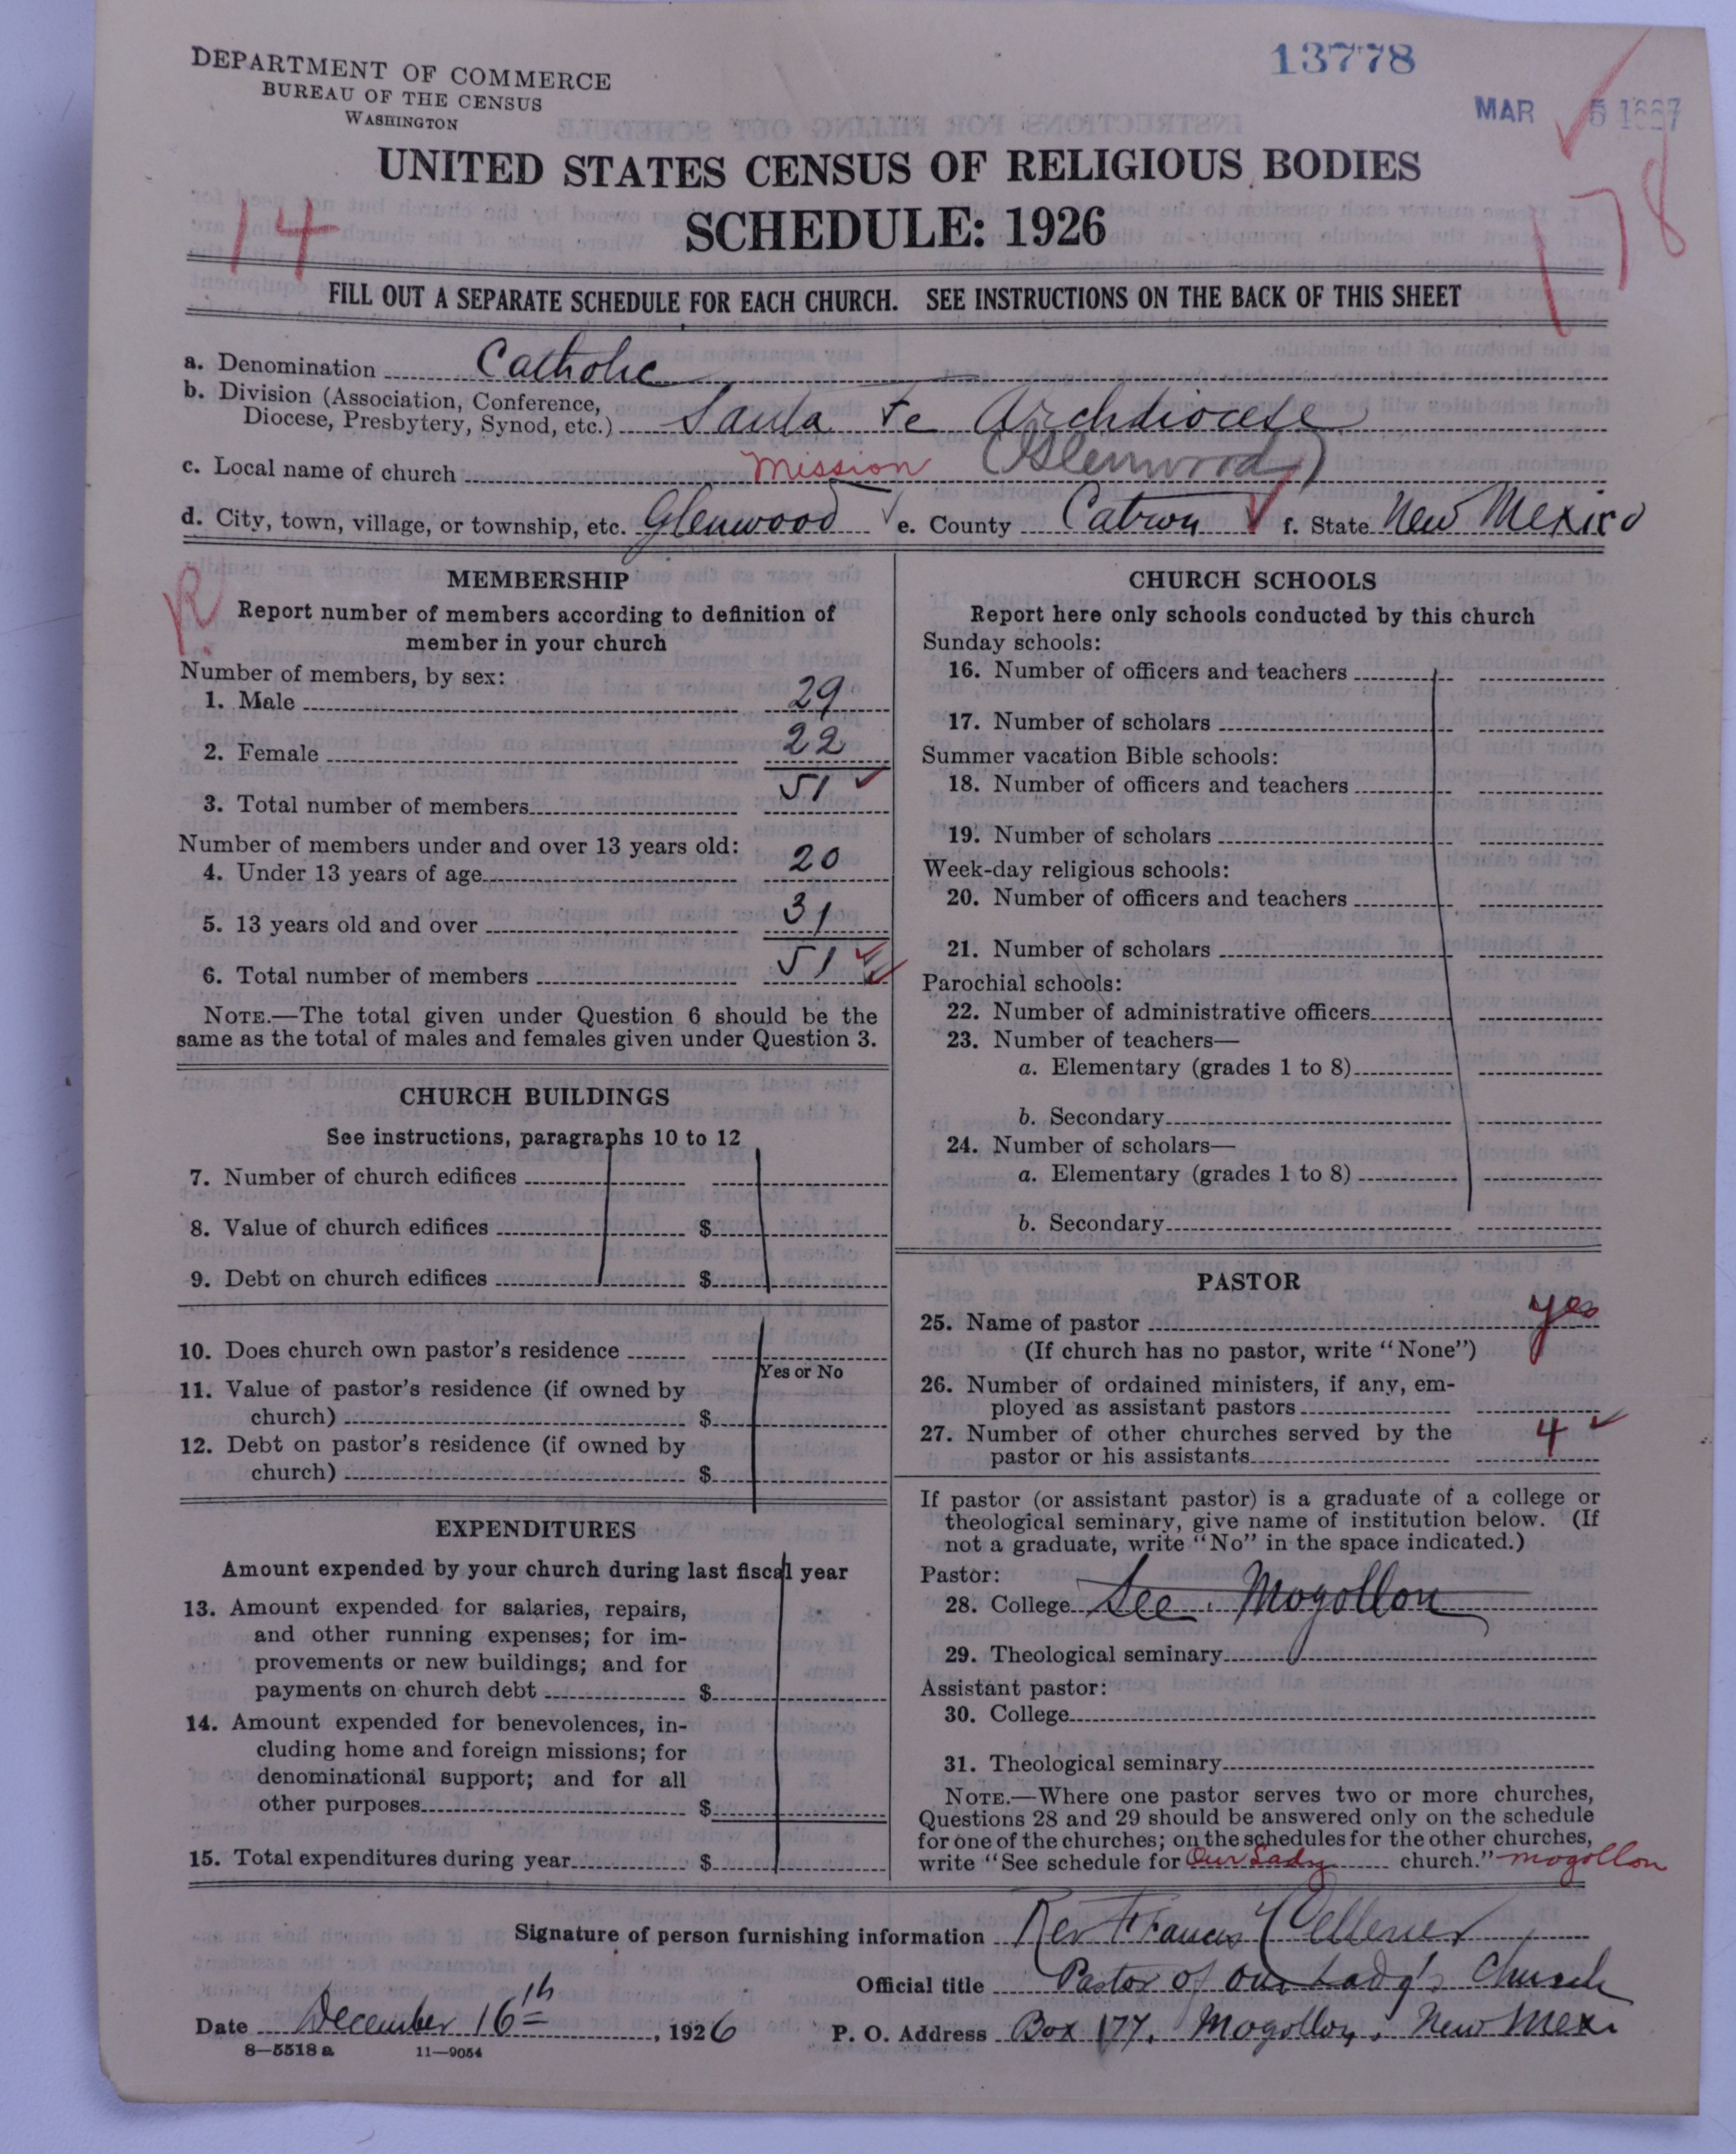 DEPARTMENT OF COMMERCE
BUREAU OF THE CENSUS
WASHINGTON
13778
MAR 5 1927
UNITED STATES CENSUS OF RELIGIOUS BODIES
SCHEDULE: 1926
14
178
FILL OUT A SEPARATE SCHEDULE FOR EACH CHURCH. SEE INSTRUCTIONS ON THE BACK OF THIS SHEET
a. Denomination Catholic
b. Division (Association, Conference,
Diocese, Presbytery, Synod, etc.) Santa Fe Archdiocese
c. Local name of church Mission (Glenwood)
d. City, town, village, or township, etc. Glenwood e. County Catron f. State New Mexico
R.
MEMBERSHIP
Report number of members according to definition of
member in your church
Number of members, by sex:
1. Male 29
2. Female 22
3. Total number of members 51
Number of members under and over 13 years old:
4. Under 13 years of age 20
5. 13 years old and over 31
6. Total number of members 51
NOTE.—The total given under Question 6 should be the
same as the total of males and females given under Question 3.
CHURCH BUILDINGS
See instructions, paragraphs 10 to 12
7. Number of church edifices
8. Value of church edifices $
9. Debt on church edifices $
10. Does church own pastor's residence
Yes or No
11. Value of pastor's residence (if owned by
church) $
12. Debt on pastor's residence (if owned by
church) $
EXPENDITURES
Amount expended by your church during last fiscal year
13. Amount expended for salaries, repairs,
and other running expenses; for im-
provements or new buildings; and for
payments on church debt $
14. Amount expended for benevolences, in-
cluding home and foreign missions; for
denominational support; and for all
other purposes $
15. Total expenditures during year $
CHURCH SCHOOLS
Report here only schools conducted by this church
Sunday schools:
16. Number of officers and teachers
17. Number of scholars
Summer vacation Bible schools:
18. Number of officers and teachers
19. Number of scholars
Week-day religious schools:
20. Number of officers and teachers
21. Number of scholars
Parochial schools:
22. Number of administrative officers
23. Number of teachers—
a. Elementary (grades 1 to 8)
b. Secondary
24. Number of scholars—
a. Elementary (grades 1 to 8)
b. Secondary
PASTOR
25. Name of pastor yes
(If church has no pastor, write "None")
26. Number of ordained ministers, if any, em-
ployed as assistant pastors
27. Number of other churches served by the
pastor or his assistants 4
If pastor (or assistant pastor) is a graduate of a college or
theological seminary, give name of institution below. (If
not a graduate, write "No" in the space indicated.)
Pastor:
28. College See Mogollon
29. Theological seminary
Assistant pastor:
30. College
31. Theological seminary
NOTE.—Where one pastor serves two or more churches,
Questions 28 and 29 should be answered only on the schedule
for one of the churches; on the schedules for the other churches,
write "See schedule for Our Lady church." Mogollon
Signature of person furnishing information Rev Francis
Official title Pastor of Our Lady's Church
Date December 16th, 1926 P. O. Address Box 177, Mogollon, New Mex.
8—5518 a 11—9054